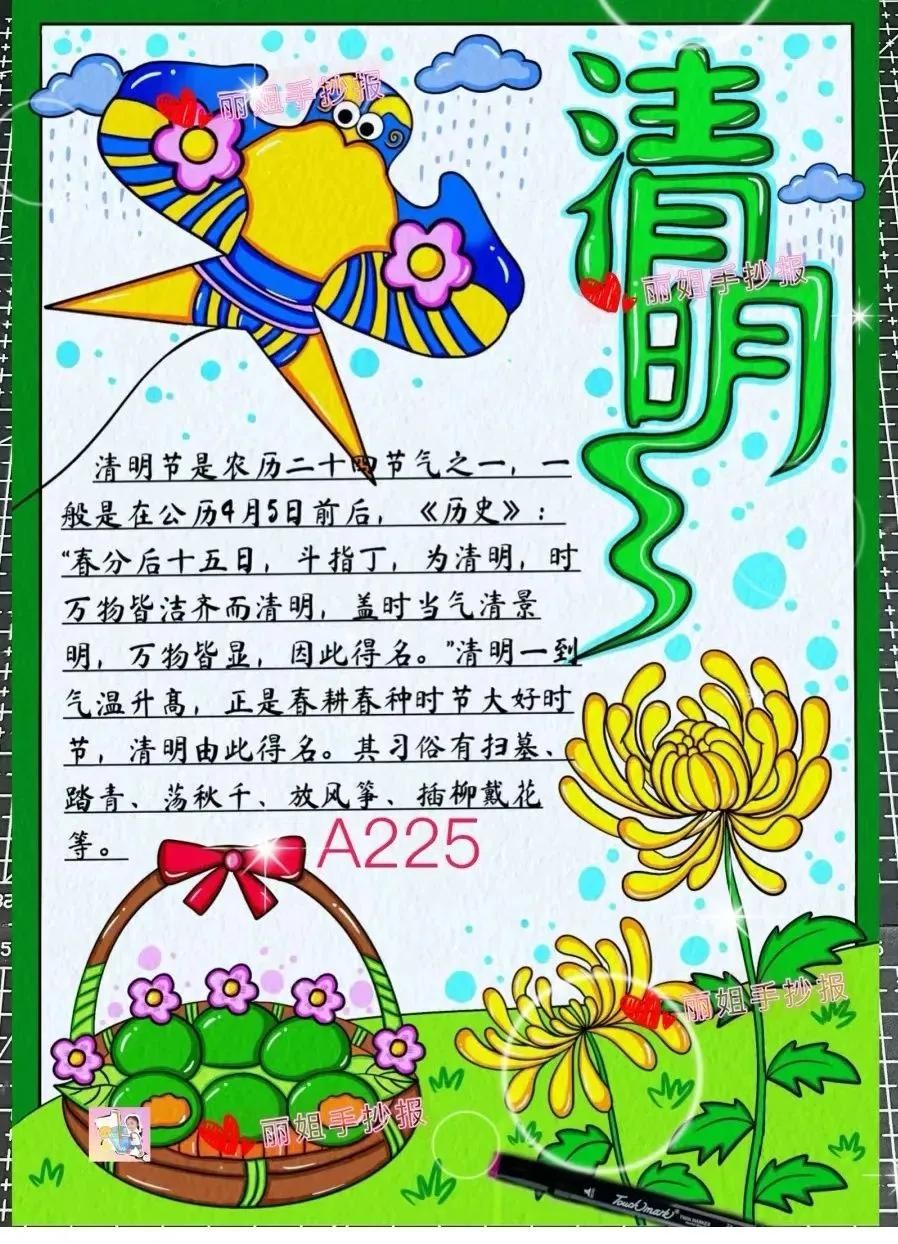 清明
丽姐手抄报
丽姐手抄报
清明节是农历二十四节气之一，一
般是在公历4月5日前后，《历史》：
“春分后十五日，斗指丁，为清明，时
万物皆洁齐而清明，盖时当气清景
明，万物皆显，因此得名。”清明一到
气温升高，正是春耕春种时节大好时
节，清明由此得名。其习俗有扫墓、
踏青、荡秋千、放风筝、插柳戴花
等。
A225
丽姐手抄报
丽姐手抄报
Touchmark